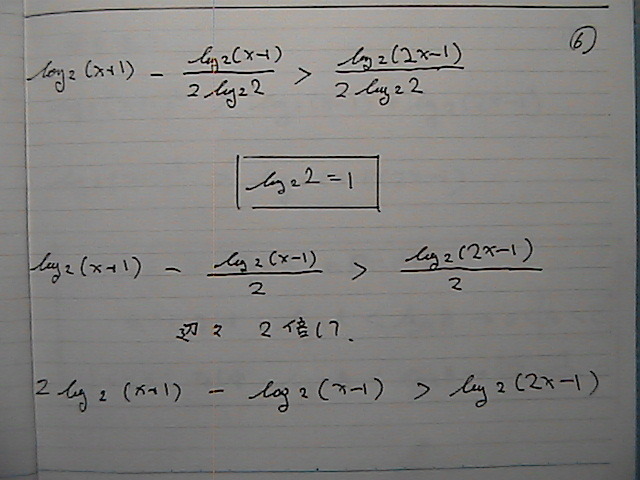 ⑥
log₂(x+1) - log₂(x-1)/(2 log₂2) > log₂(2x-1)/(2 log₂2)
log₂2 = 1
log₂(x+1) - log₂(x-1)/2 > log₂(2x-1)/2
2倍して.
2 log₂(x+1) - log₂(x-1) > log₂(2x-1)